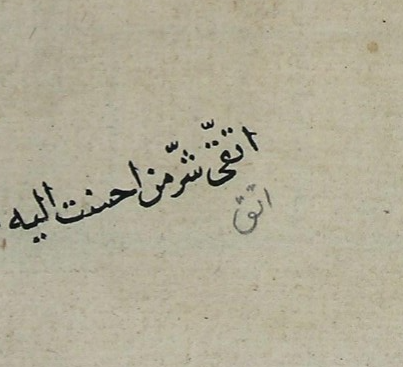 اتقّى شرّ من احسنت اليه
اتق